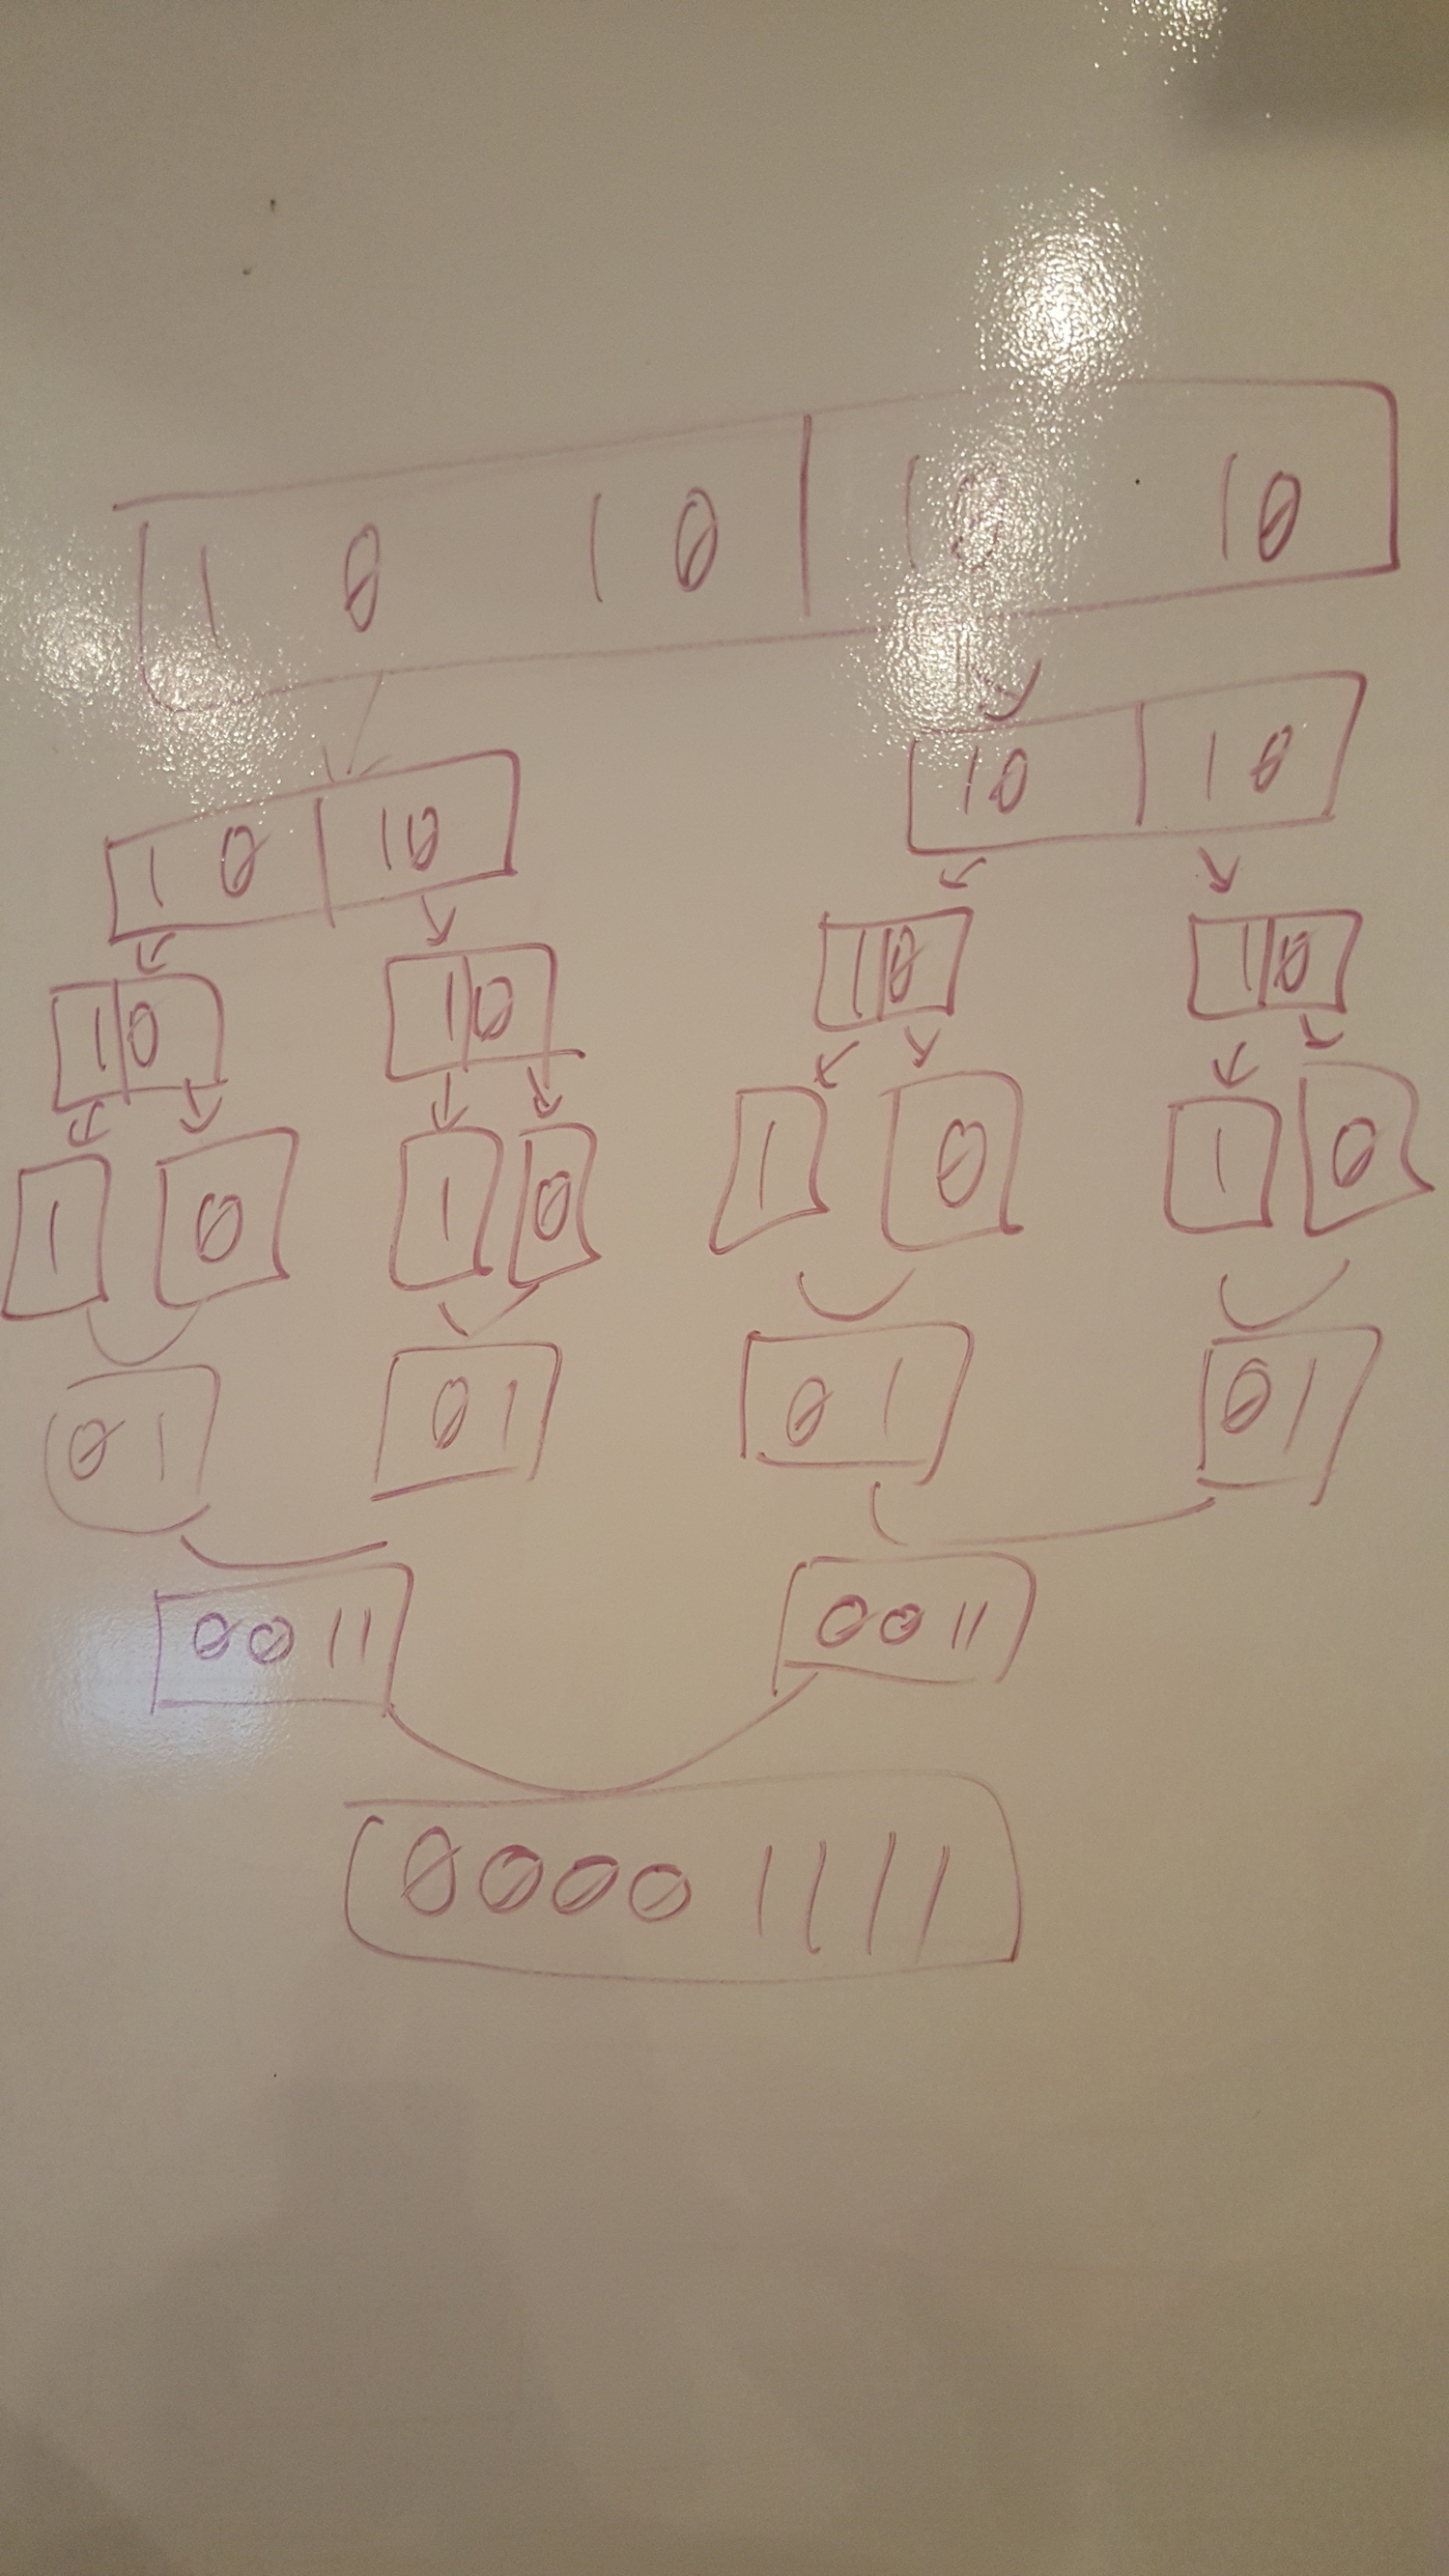 1 0 1 0 | 1 0 1 0
1 0 | 1 0 1 0 | 1 0
1|0 1|0 1|0 1|0
1 0 1 0 1 0 1 0
0 1 0 1 0 1 0 1
0 0 1 1 0 0 1 1
0 0 0 0 1 1 1 1